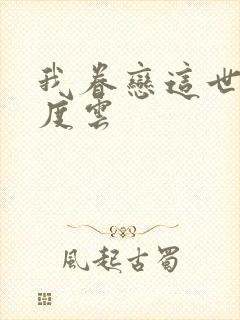 我眷戀這世
度雲
風起古蜀